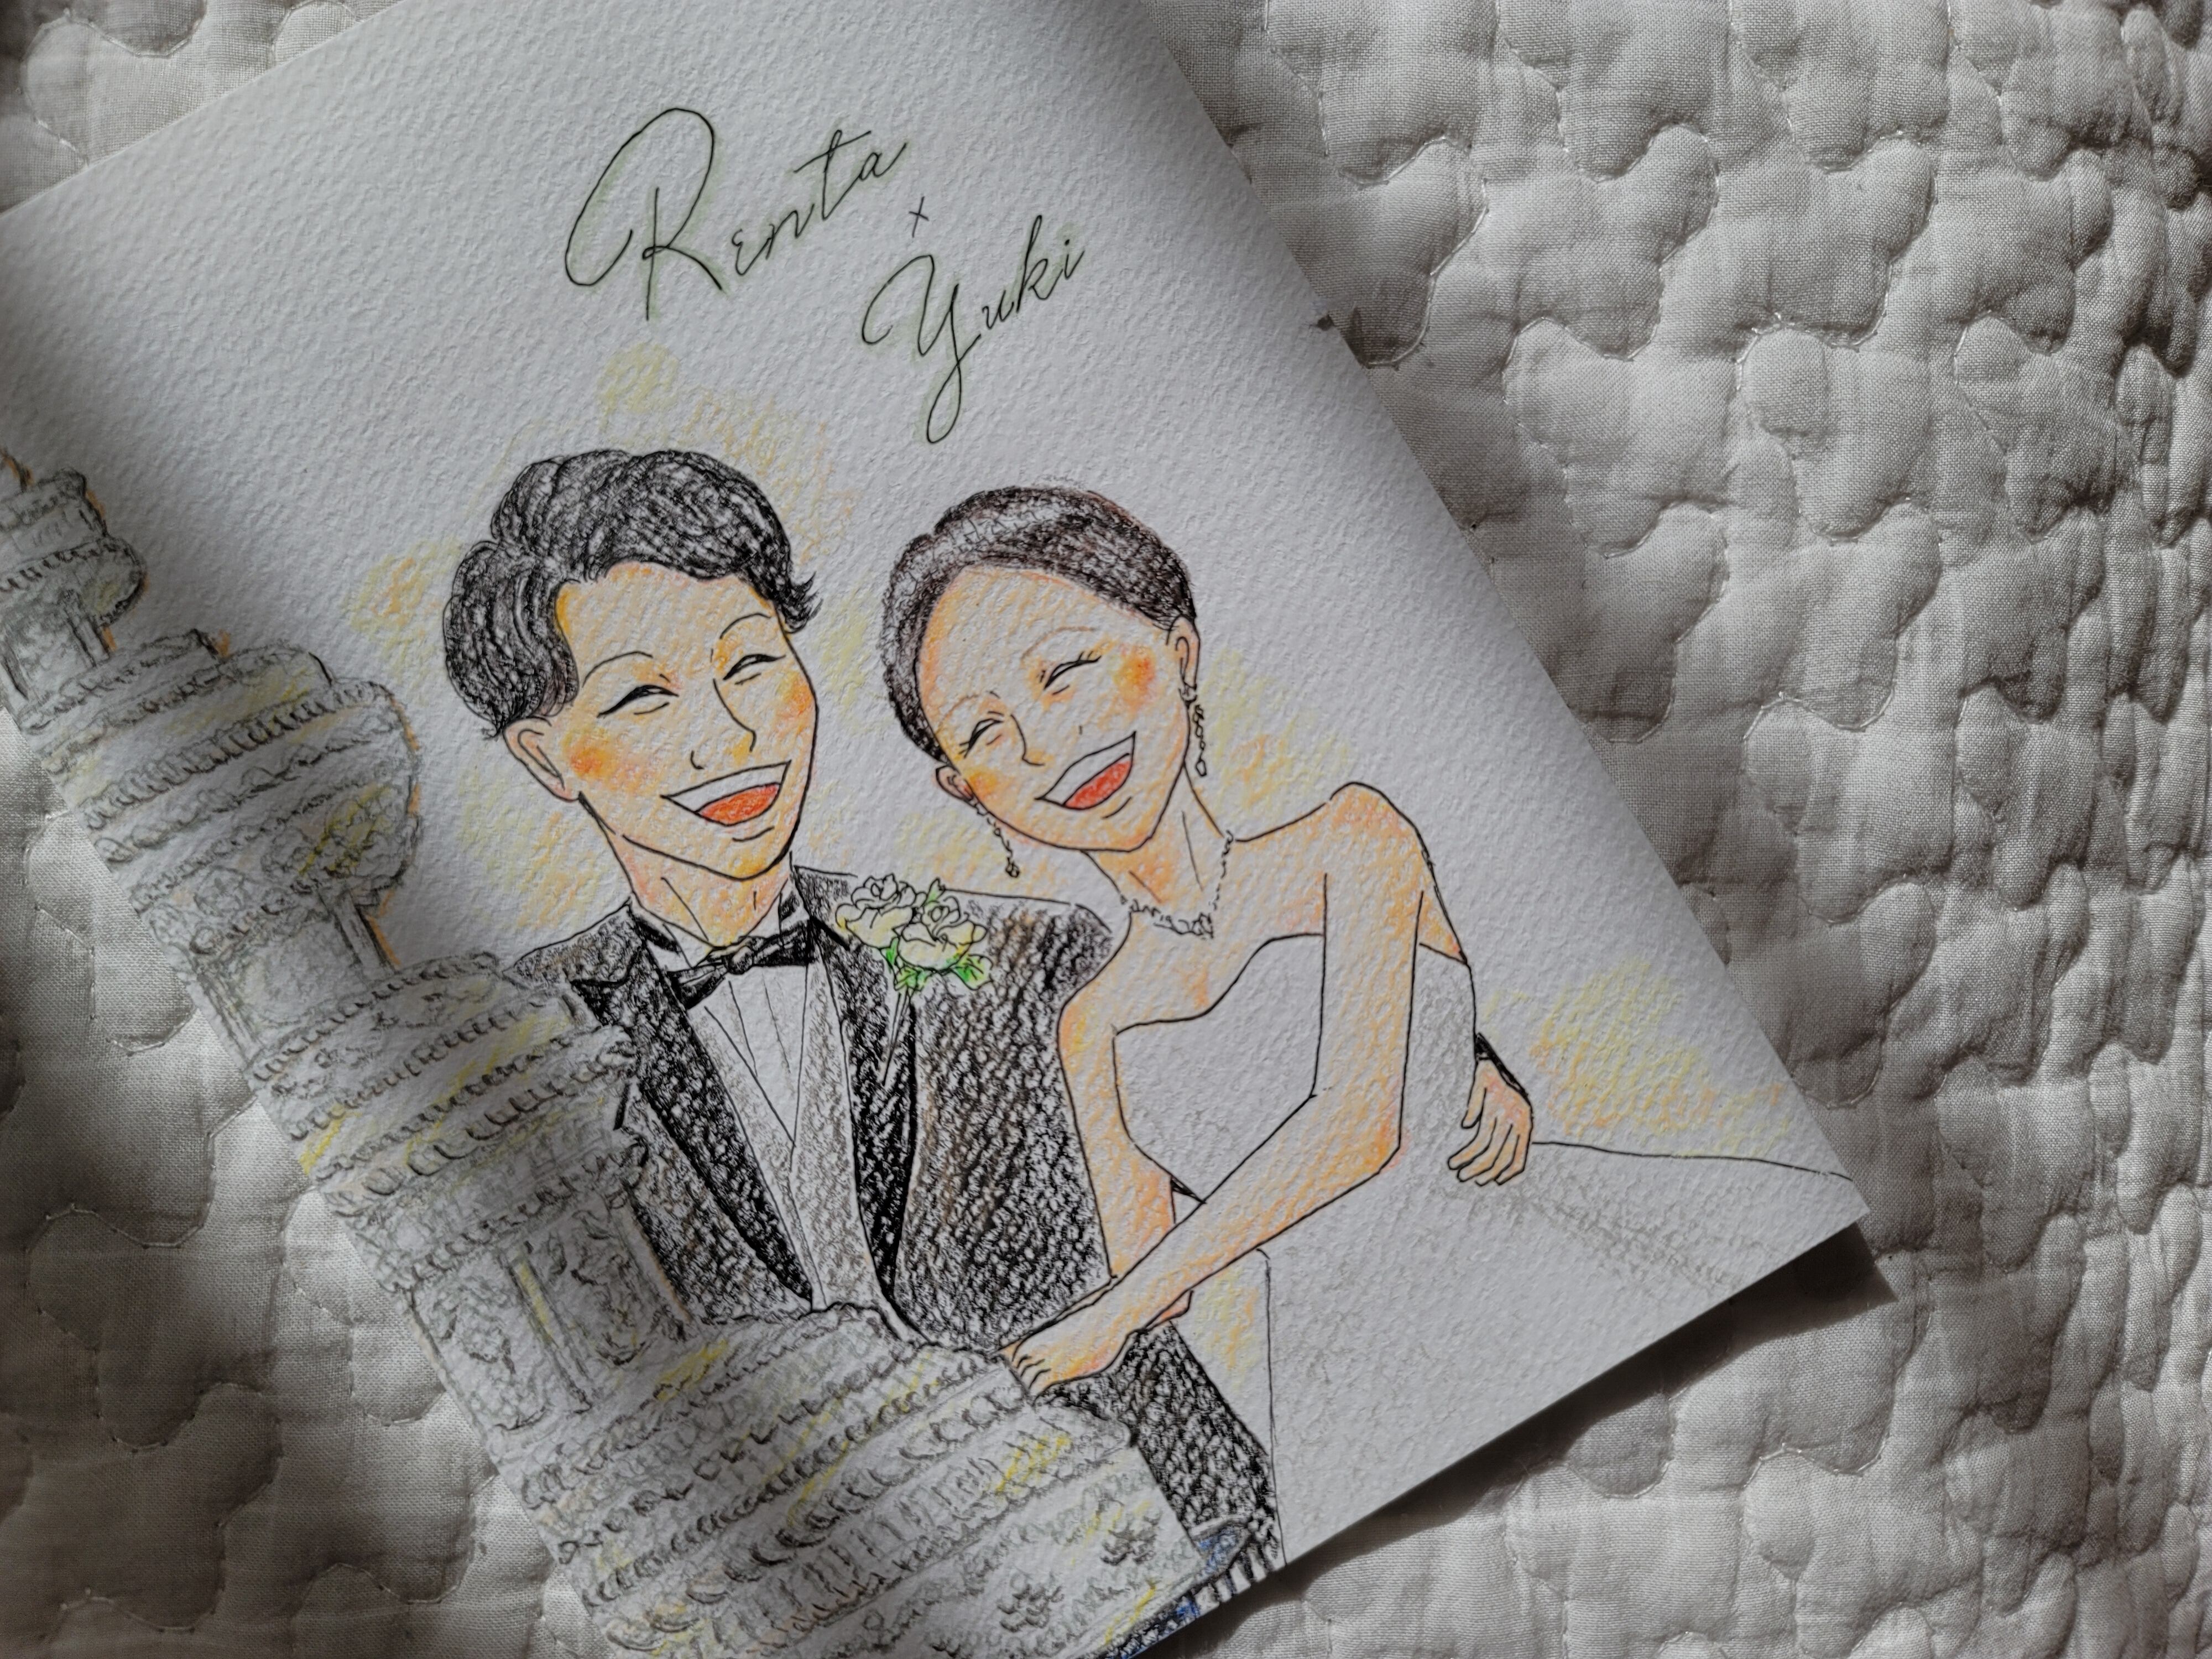 Renta
×
Yuki